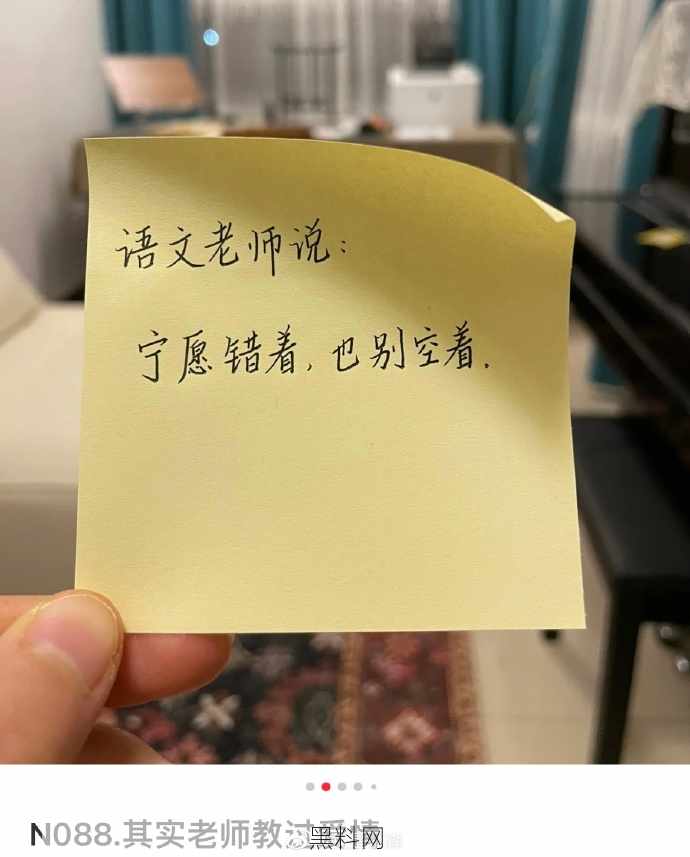 语文老师说：
宁愿错着，也别空着.
N088.其实老师教过爱情
黑料网